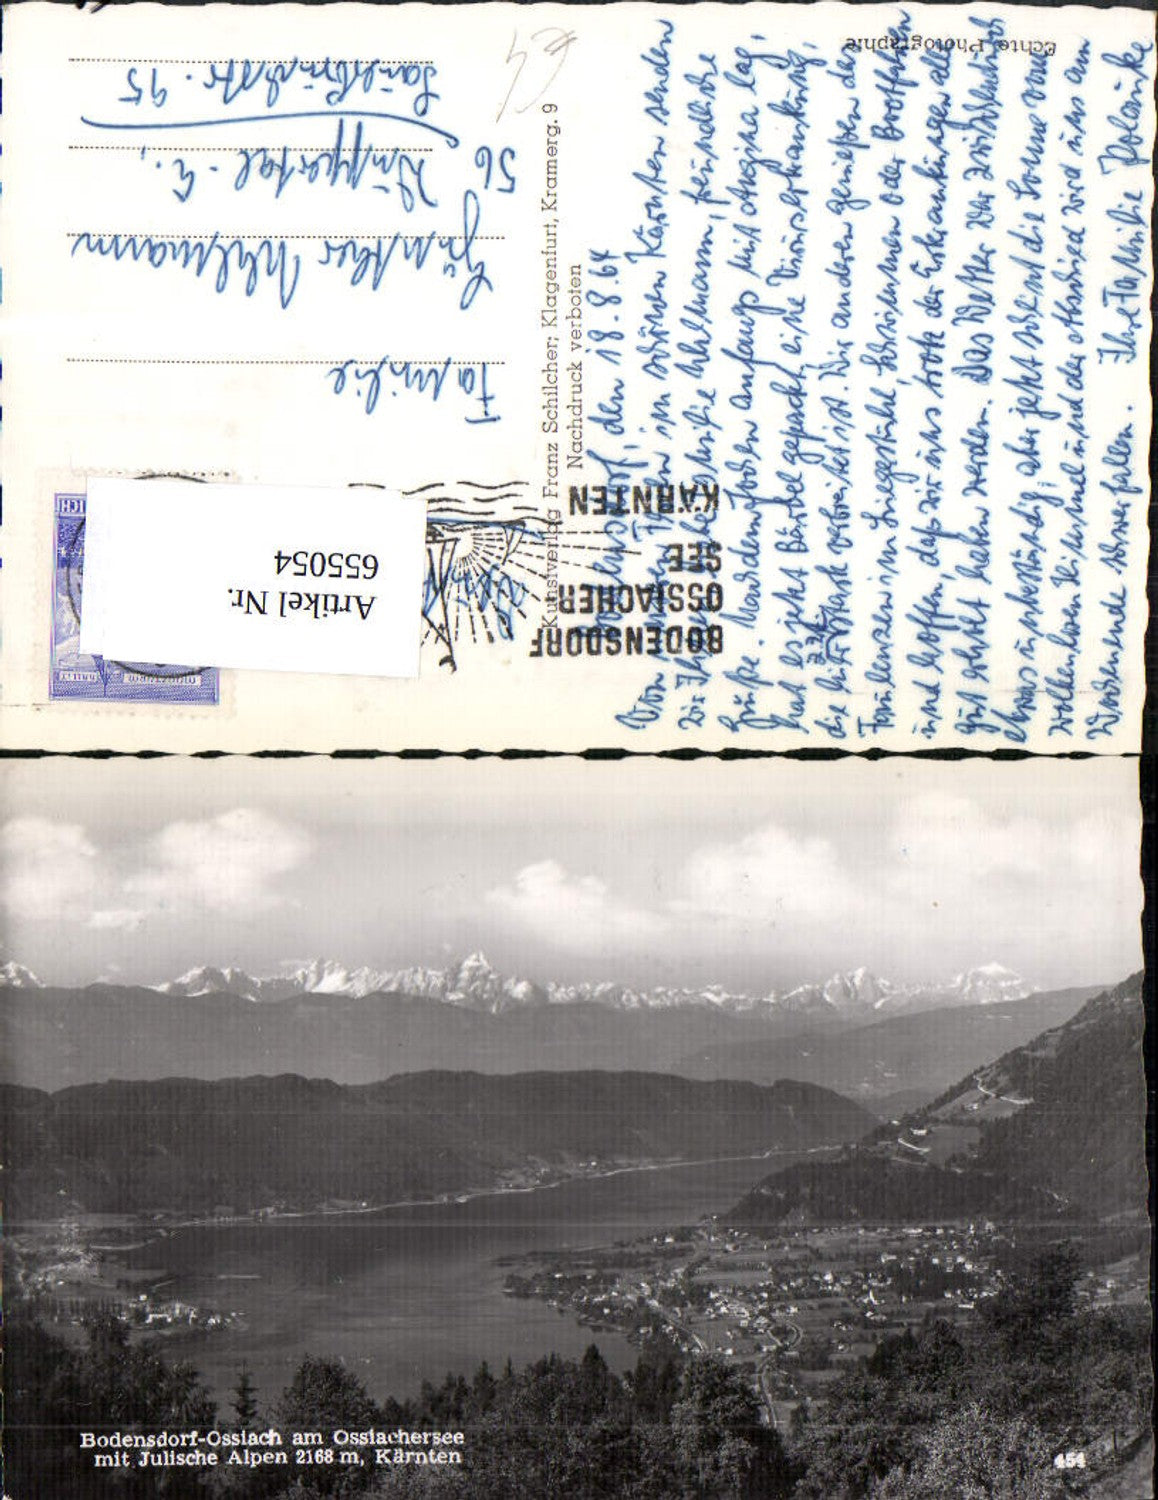 Echte Photographie
Bodensdorf, den 18.8.64
Von Ihrem in schönen Kärnten senden
wir Ihnen, liebe Familie Uhlmann, freundliche
Grüße. Nachdem Jochen anfangs mit Angina lag,
hat es jetzt Bärbel gepackt, eine Viruserkrankung,
die hier stark verbreitet ist. Wir anderen genießen das
Faulenzen im Liegestuhl, Schwimmen oder Bootfahren
und hoffen, daß wir uns trotz der Erkrankungen alle
gut erholt haben werden. Das Wetter war zwischendurch
etwas unbeständig, aber jetzt scheint die Sonne vom
wolkenlosen Himmel und der Abschied wird uns am
Wochenende schwer fallen. Ihre Familie Polanke
Kunstverlag Franz Schilcher, Klagenfurt, Kramerg. 9
Nachdruck verboten
BODENSDORF
OSSIACHER
SEE
KÄRNTEN
Artikel Nr.
655054
Familie
Günther Uhlmann
56 Wuppertal-E.,
Saarbrückstr. 95
Bodensdorf-Ossiach am Ossiachersee
mit Julische Alpen 2168 m, Kärnten
454